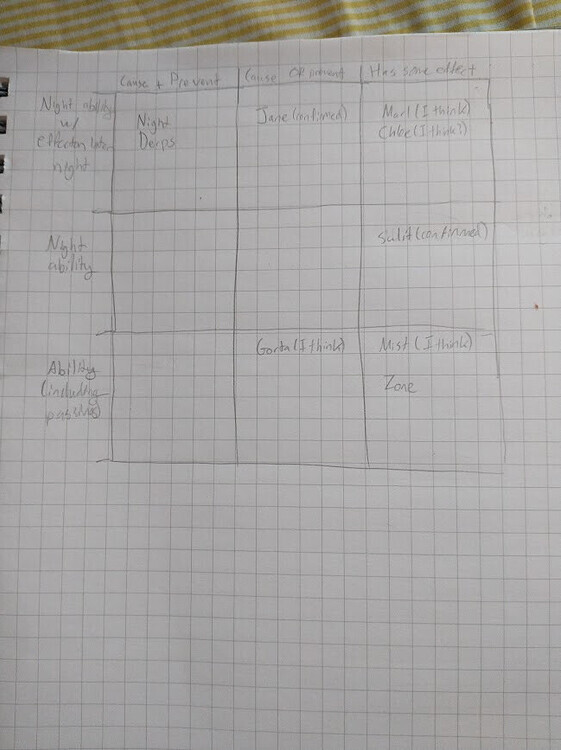 Cause + Prevent
Cause OR prevent
Has some effect
Night ability
w/
effect on
night
Night
Derps
Jane (confirmed)
Marl (I think)
Chloe (I think)
Night
ability
Salit (confirmed)
Ability
(including
passives)
Gorta (I think)
Mist (I think)
Zone